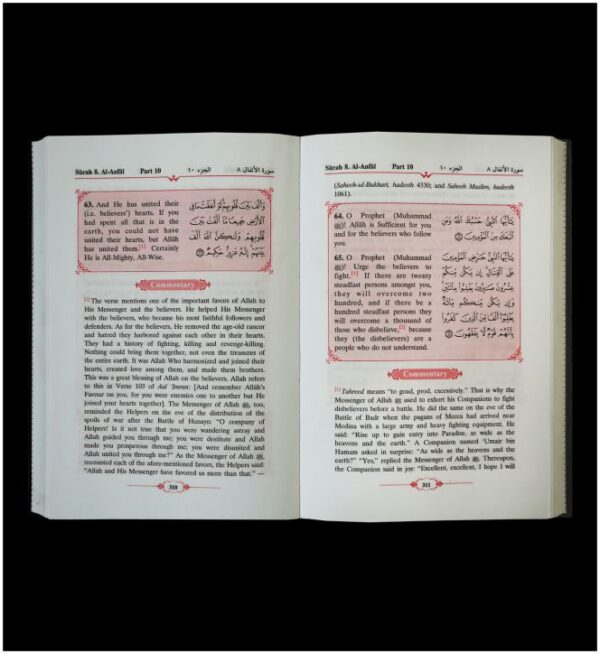 Sûrah 8. Al-Anfâl Part 10 الجزء ١٠ سورة الأنفال ٨
63. And He has united their
(i.e. believers') hearts. If you
had spent all that is in the
earth, you could not have
united their hearts, but Allâh
has united them.[1] Certainly
He is All-Mighty, All-Wise.
وَأَلَّفَ بَيْنَ قُلُوبِهِمْ لَوْ أَنفَقْتَ مَا فِي
الْأَرْضِ جَمِيعًا مَّا أَلَّفْتَ بَيْنَ
قُلُوبِهِمْ وَلَٰكِنَّ اللَّهَ أَلَّفَ
بَيْنَهُمْ إِنَّهُ عَزِيزٌ حَكِيمٌ ٦٣
Commentary
[1] The verse mentions one of the important favors of Allah to
His Messenger and the believers. He helped His Messenger
with the believers, who became his most faithful followers and
defenders. As for the believers, He removed the age-old rancor
and hatred they harbored against each other in their hearts.
They had a history of fighting, killing and revenge-killing.
Nothing could bring them together, not even the treasures of
the entire earth. It was Allah Who harmonized and joined their
hearts, created love among them, and made them brothers.
This was a great blessing of Allah on the believers. Allah refers
to this in Verse 103 of Aal 'Imran: [And remember Allâh's
Favour on you, for you were enemies one to another but He
joined your hearts together]. The Messenger of Allah ﷺ, too,
reminded the Helpers on the eve of the distribution of the
spoils of war after the Battle of Hunayn: "O company of
Helpers! Is it not true that you were wandering astray and
Allah guided you through me; you were destitute and Allah
made you prosperous through me; you were disunited and
Allah united you through me?" As the Messenger of Allah ﷺ,
recounted each of the afore-mentioned favors, the Helpers said:
"Allah and His Messenger have favored us more than that." —
310
Sûrah 8. Al-Anfâl Part 10 الجزء ١٠ سورة الأنفال ٨
(Saheeh-ul-Bukhari, hadeeth 4330; and Saheeh Muslim, hadeeth
1061).
64. O Prophet (Muhammad
ﷺ)! Allâh is Sufficient for you
and for the believers who follow
you.
يَا أَيُّهَا النَّبِيُّ حَسْبُكَ اللَّهُ وَمَنِ
اتَّبَعَكَ مِنَ الْمُؤْمِنِينَ ٦٤
65. O Prophet (Muhammad
ﷺ)! Urge the believers to
fight.[1] If there are twenty
steadfast persons amongst you,
they will overcome two
hundred, and if there be a
hundred steadfast persons they
will overcome a thousand of
those who disbelieve,[2] because
they (the disbelievers) are a
people who do not understand.
يَا أَيُّهَا النَّبِيُّ حَرِّضِ الْمُؤْمِنِينَ
عَلَى الْقِتَالِ إِن يَكُن مِّنكُمْ
عِشْرُونَ صَابِرُونَ يَغْلِبُوا مِائَتَيْنِ
وَإِن يَكُن مِّنكُم مِّائَةٌ
يَغْلِبُوا أَلْفًا مِّنَ الَّذِينَ كَفَرُوا
بِأَنَّهُمْ قَوْمٌ لَّا يَفْقَهُونَ ٦٥
Commentary
[1] Tahreed means "to goad, prod, excessively." That is why the
Messenger of Allah ﷺ used to exhort his Companions to fight
disbelievers before a battle. He did the same on the eve of the
Battle of Badr when the pagans of Mecca had arrived near
Medina with a large army and heavy fighting equipment. He
said: "Rise up to gain entry into Paradise, as wide as the
heavens and the earth." A Companion named 'Umair bin
Humam asked in surprise: "As wide as the heavens and the
earth?" "Yes," replied the Messenger of Allah ﷺ. Thereupon,
the Companion said in joy: "Excellent, excellent, I hope I will
311